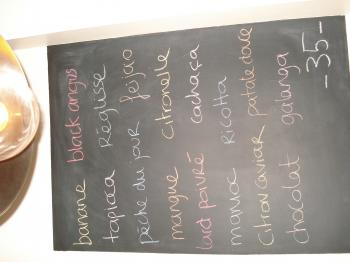 banane black angus
tapioca Réglisse
pêche du jour feijao
mangue citronelle
lard poivré cachaça
manioc ricotta
citron caviar patate douce
chocolat galanga
-35-